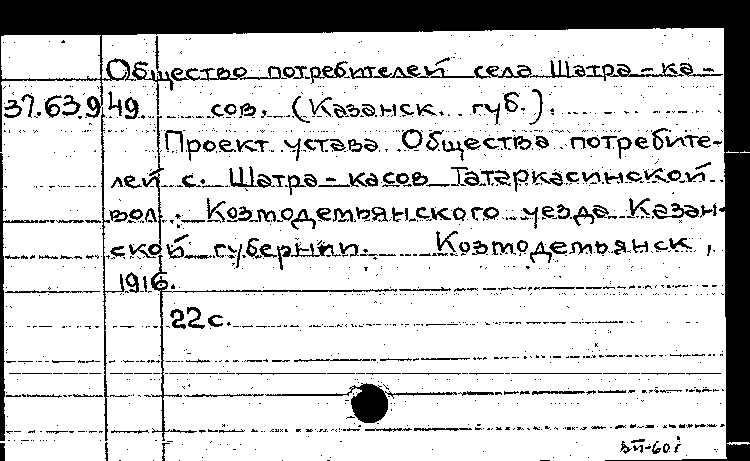 Общество потребителей села Шатра-ка-
37.63.9.49. сов. (Казанск. губ.).
Проект устава Общества потребите-
лей с. Шатра-касов Татаркасинской
вол. Козмодемьянского уезда Казан-
ской губернии. Козмодемьянск,
1916.
22 с.